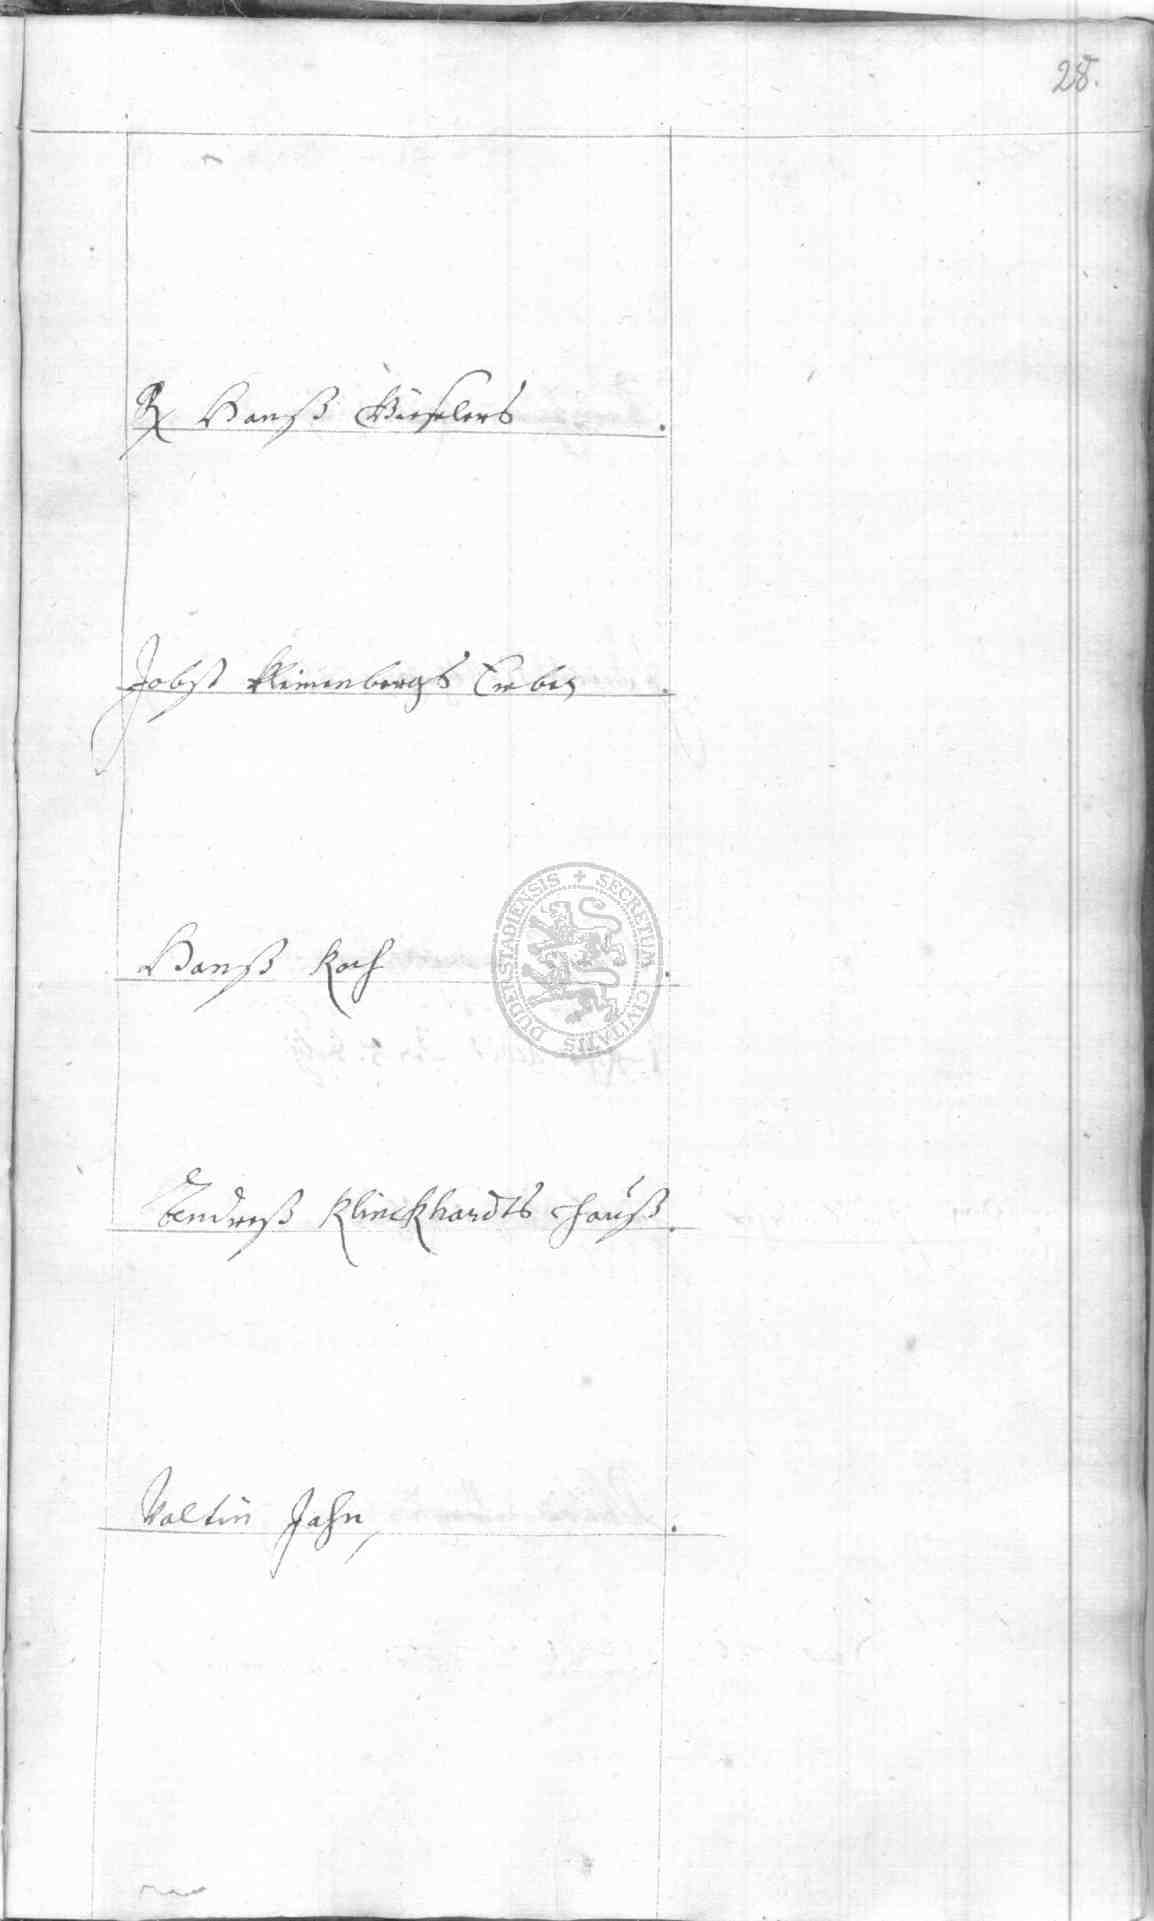 28.
Hanß Kieselers
Jobst Kleimenbergs Erben
Hanß Koch
SECRETUM CIVITATIS DUDERSTADIENSIS
Andreß Klinckhardts Hauß
Valtin Jahn